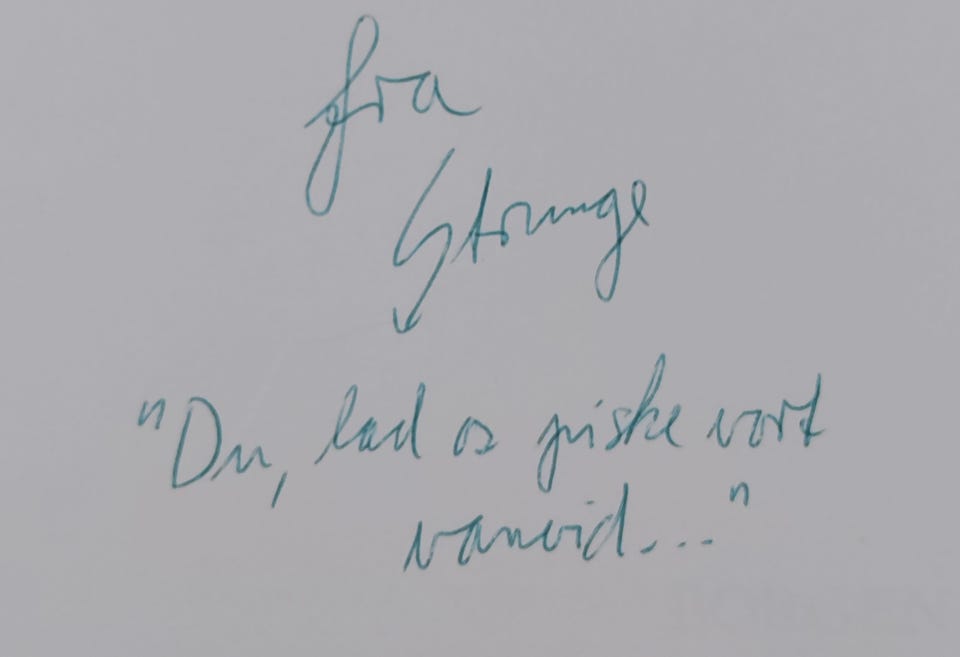 fra
Strunge
"Du, lad os piske vort
vanvid..."